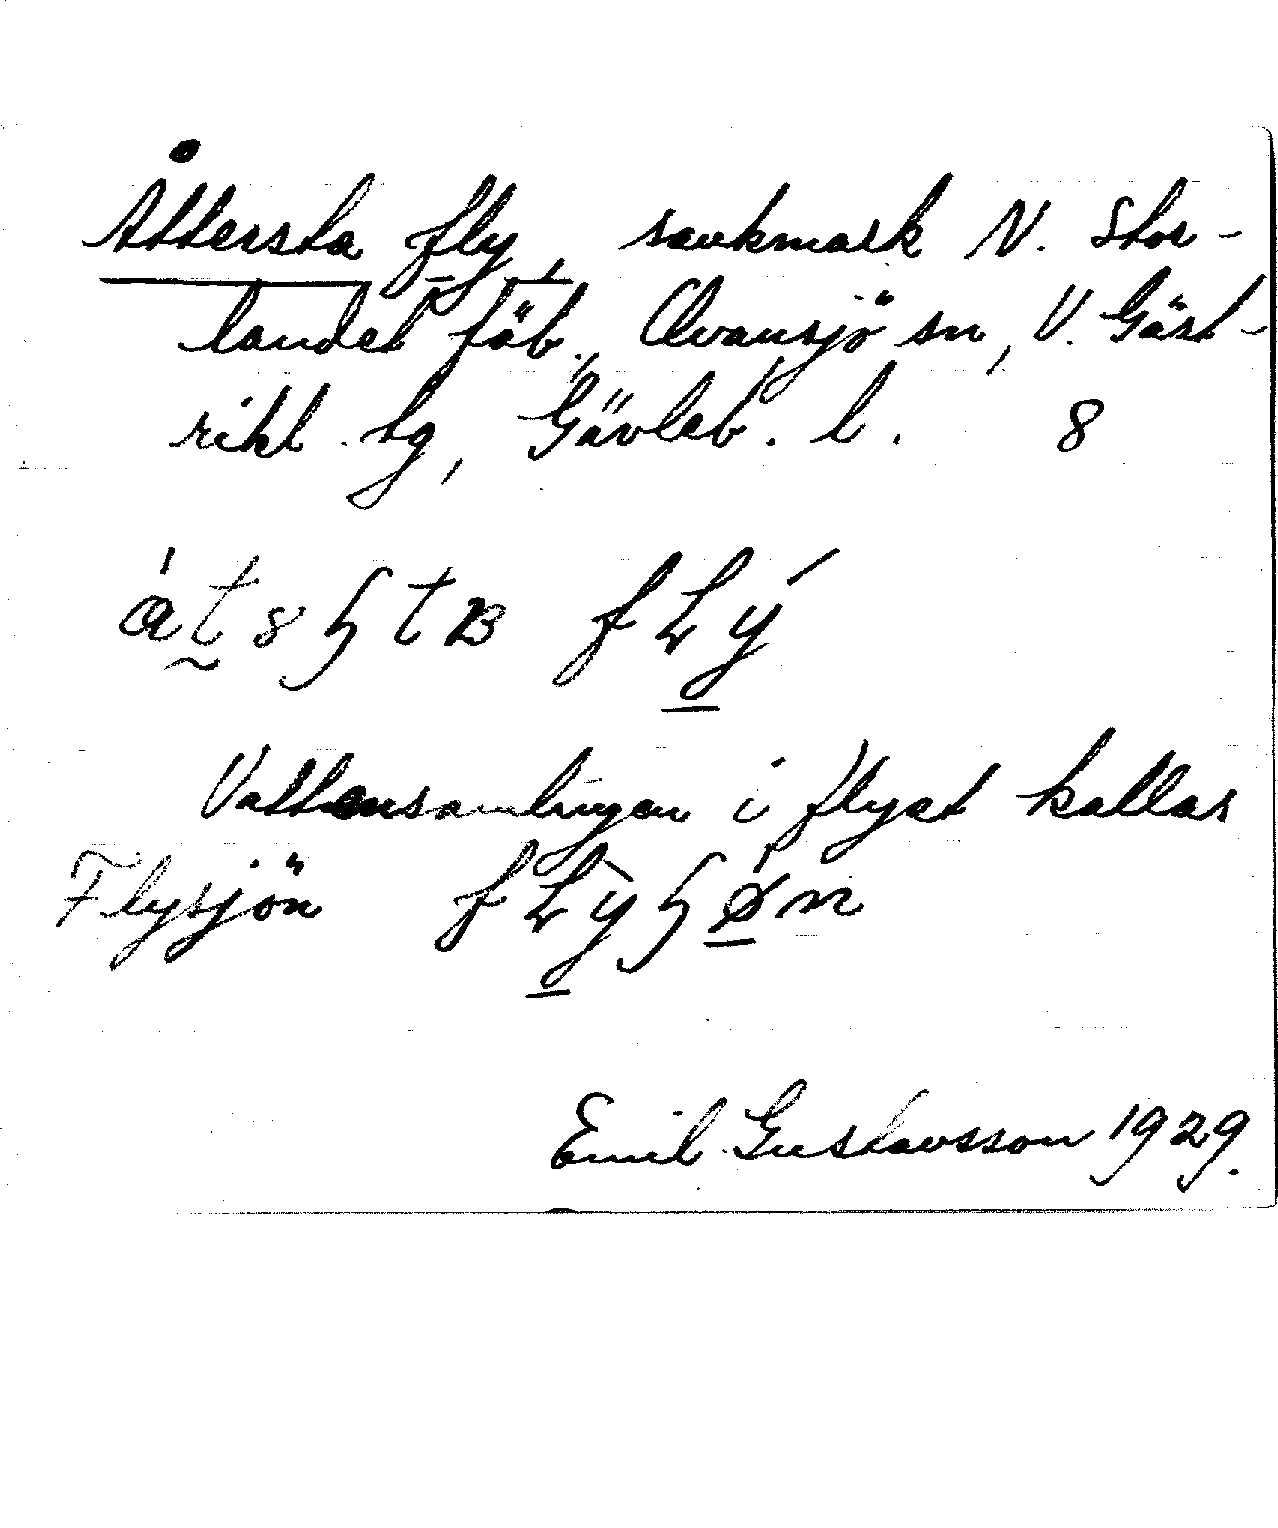 Åttersta fly, sankmark N. Stor-
landet fäb., Ovansjö sn, V. Gäst-
rikl. hg, Gävleb. l. 8
Vattensamlingen i flyet kallas
Flysjön
Emil Gustavsson 1929.